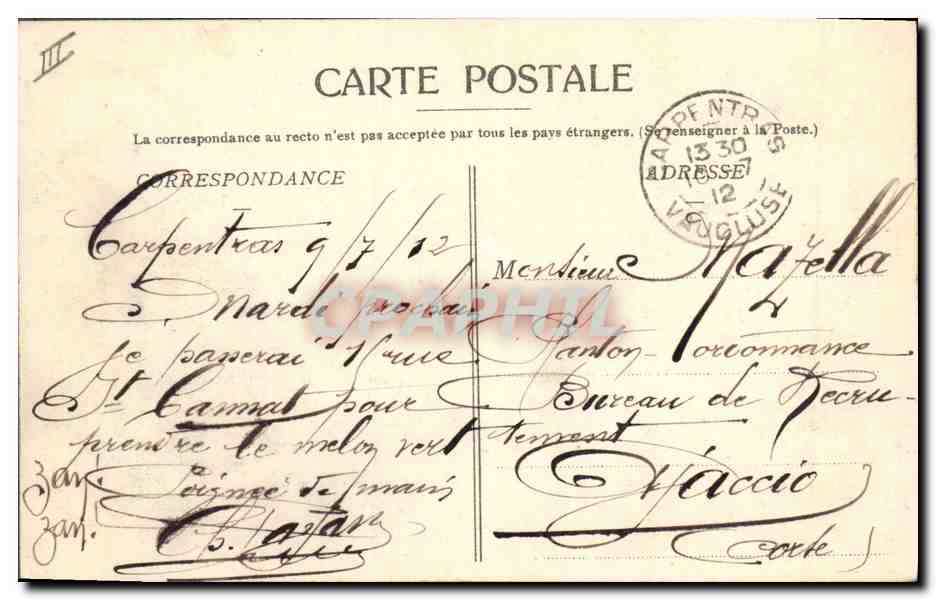 III
CARTE POSTALE
La correspondance au recto n'est pas acceptée par tous les pays étrangers. (Se renseigner à la Poste.)
CORRESPONDANCE
Carpentras 9/7/12
Mardi prochain
Je passerai 1 rue
St Cannat pour
prendre le melon vert
Poignée de mains
zan!
zan!
ADRESSE
CARPENTRAS
13 30
12
VAUCLUSE
Monsieur Mazella
Planton
Bureau de Recru-
tement
Ajaccio
Corse
CPAPHIL